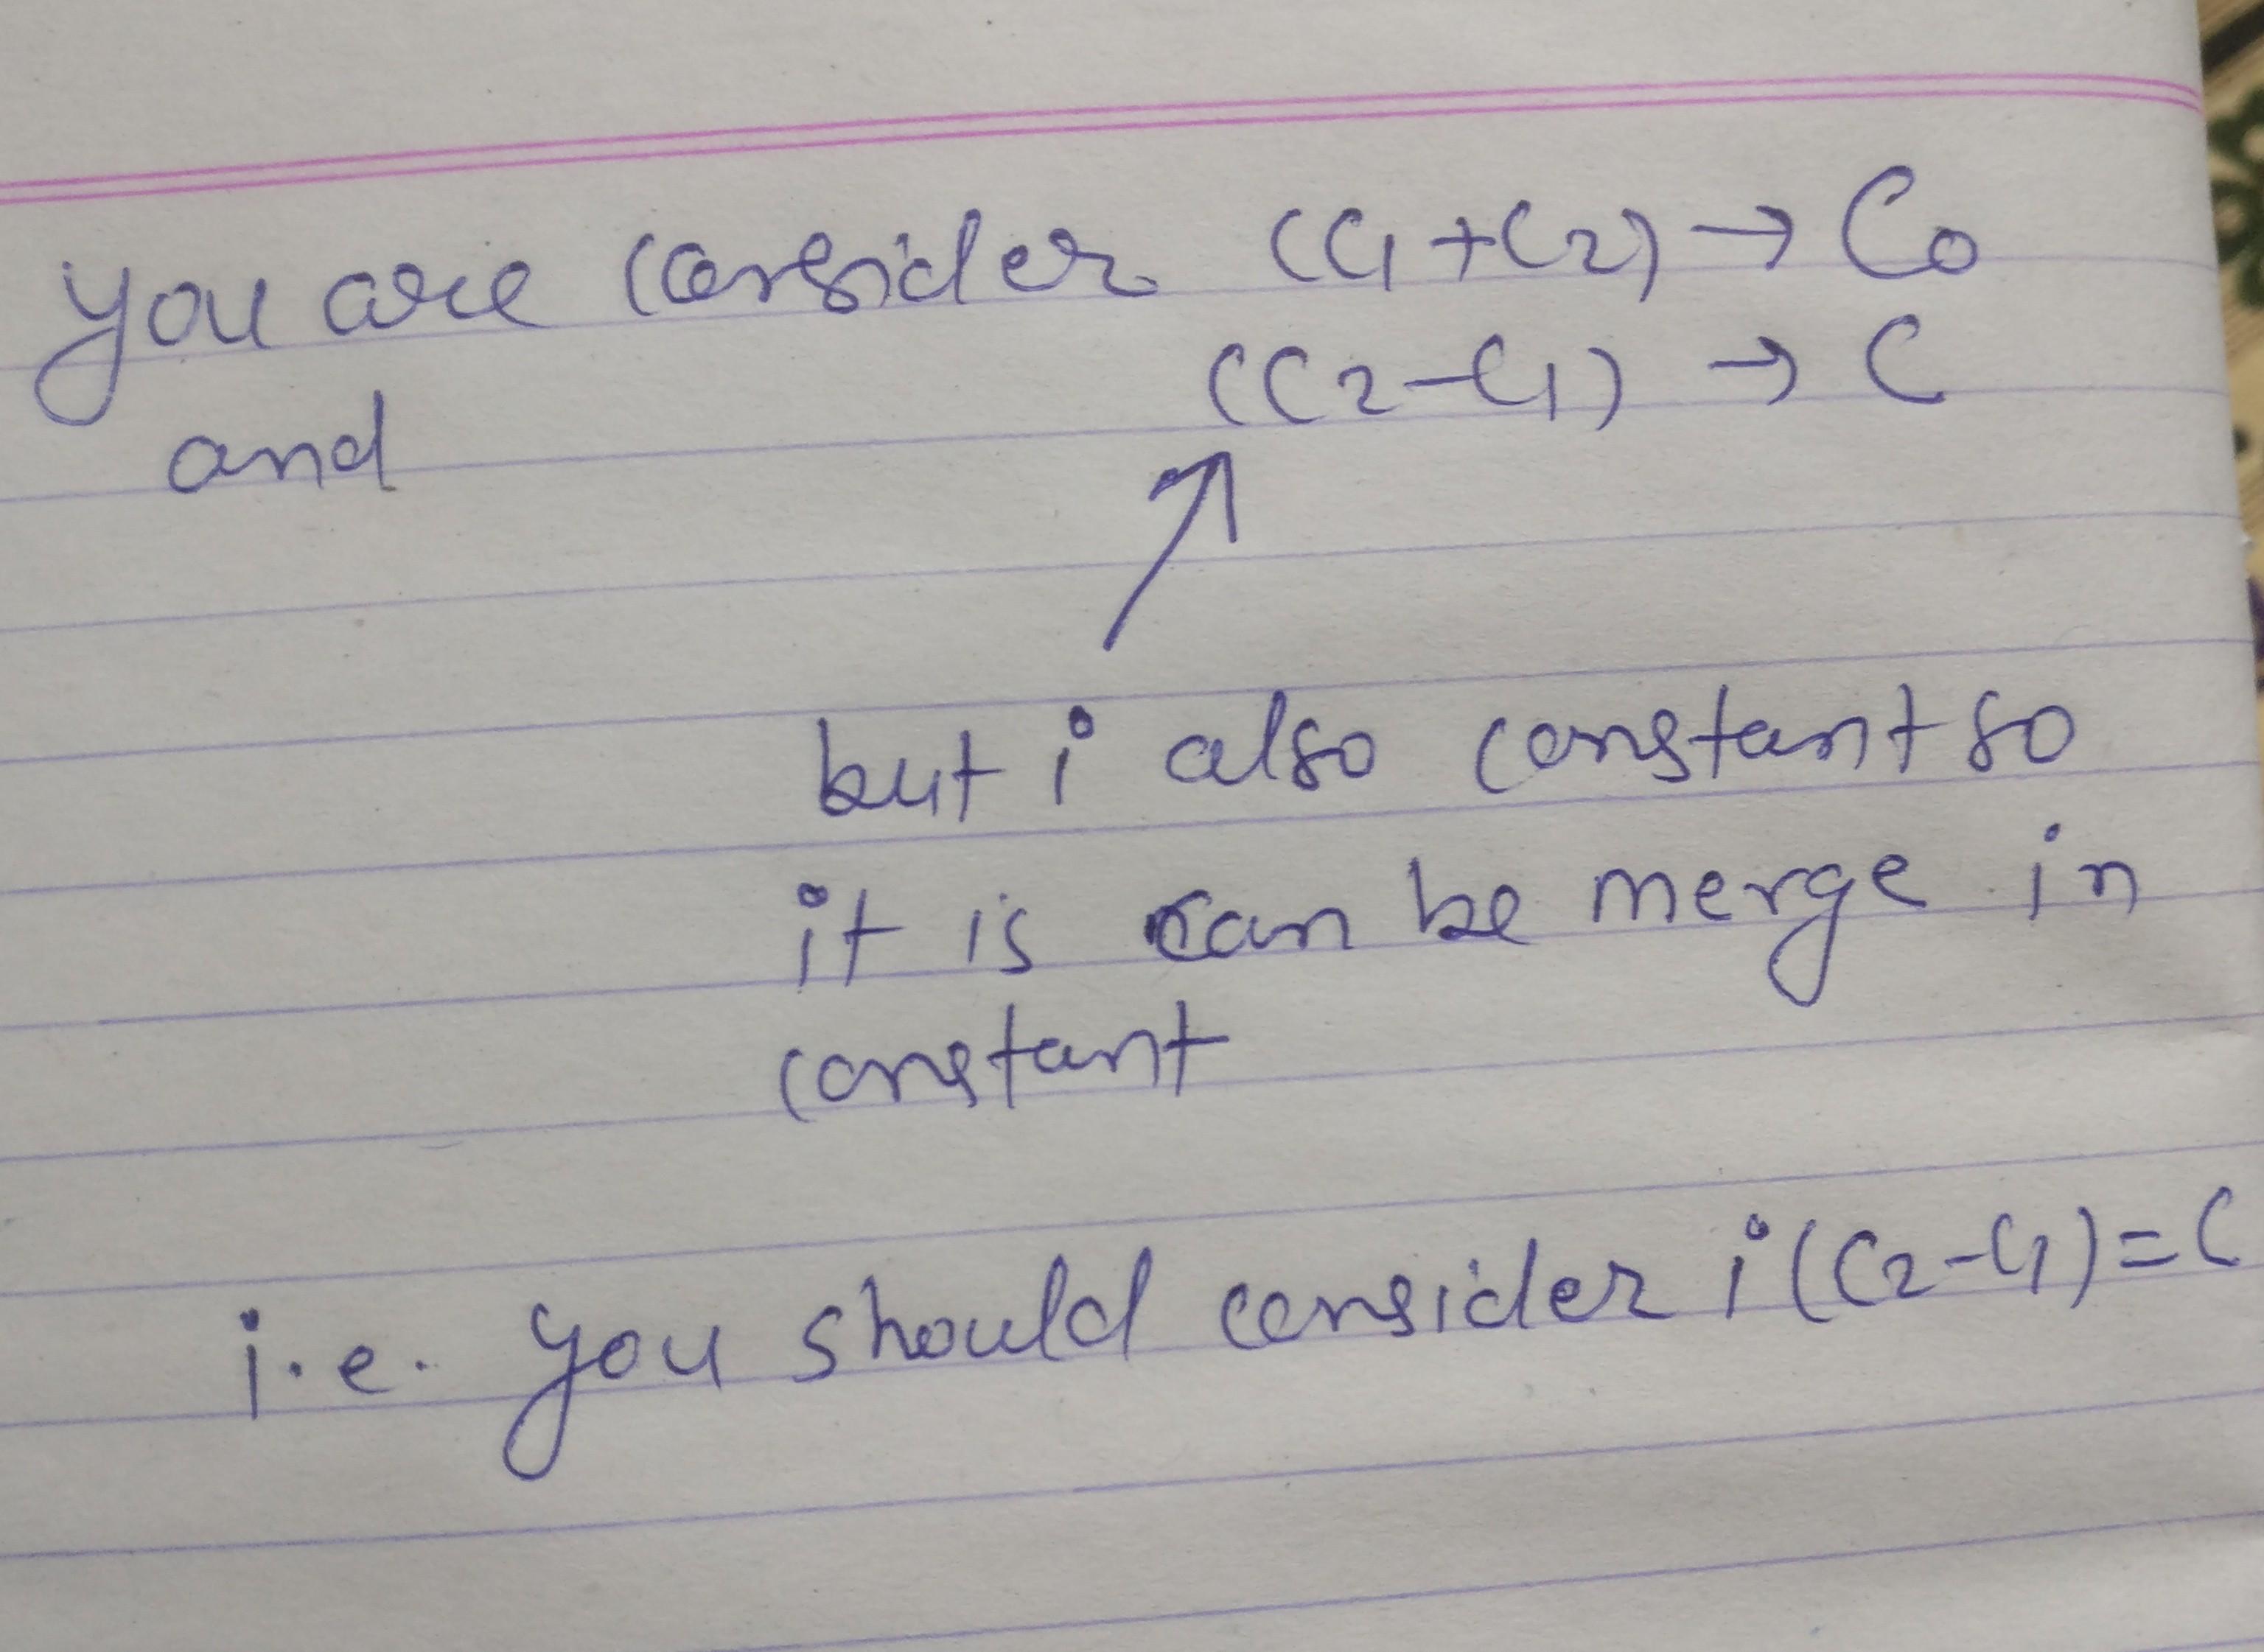 you are consider (C1+C2) → C0
and (C2-C1) → C
but i also constant so
it is can be merge in
constant
i.e. you should consider i(C2-C1)=C